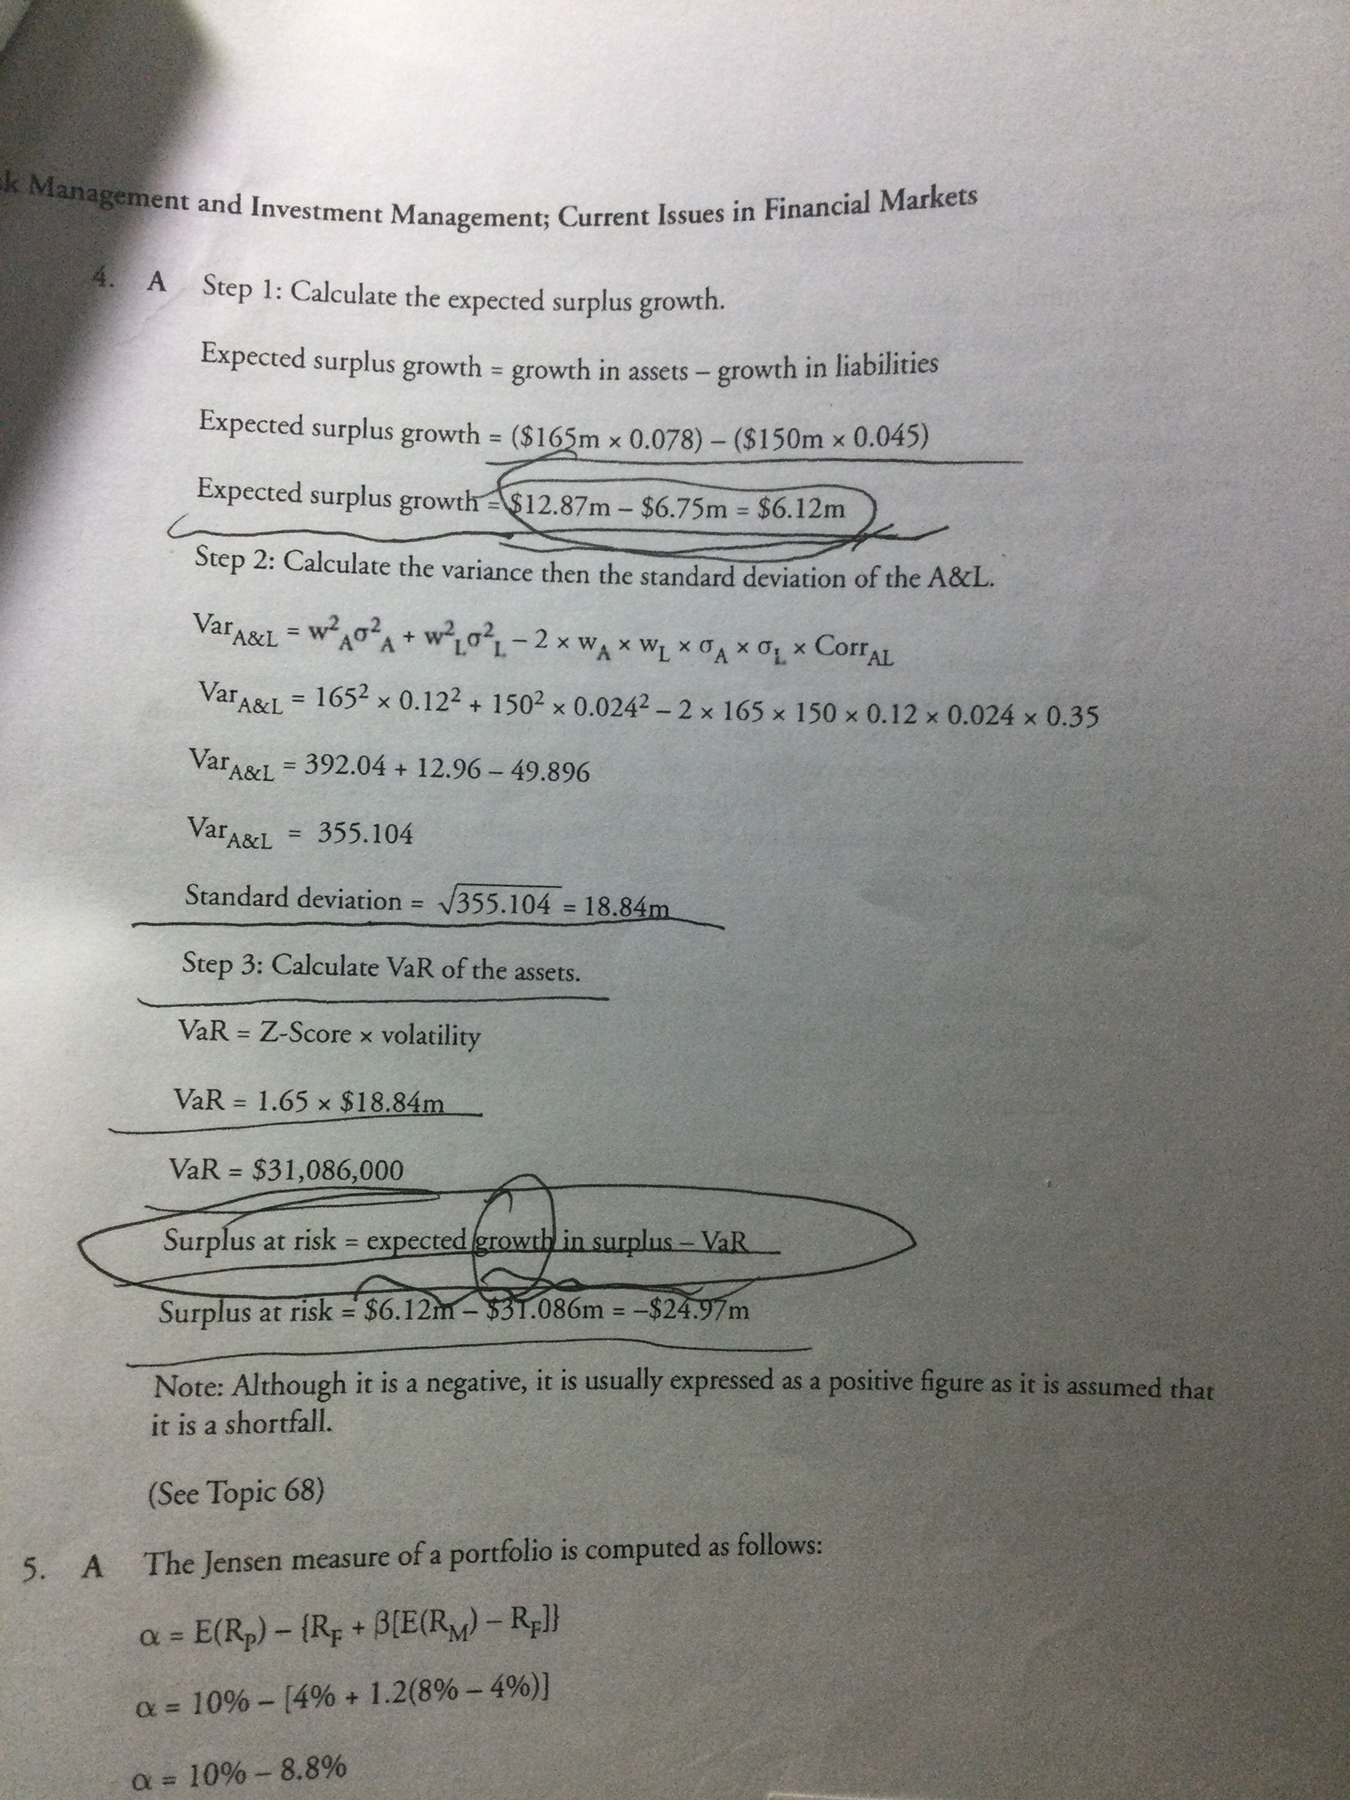 Management and Investment Management; Current Issues in Financial Markets
4. A Step 1: Calculate the expected surplus growth.
Expected surplus growth = growth in assets – growth in liabilities
Expected surplus growth = ($165m × 0.078) – ($150m × 0.045)
Expected surplus growth = $12.87m – $6.75m = $6.12m
Step 2: Calculate the variance then the standard deviation of the A&L.
Var_A&L = w²_Aσ²_A + w²_Lσ²_L – 2 × w_A × w_L × σ_A × σ_L × Corr_AL
Var_A&L = 165² × 0.12² + 150² × 0.024² – 2 × 165 × 150 × 0.12 × 0.024 × 0.35
Var_A&L = 392.04 + 12.96 – 49.896
Var_A&L = 355.104
Standard deviation = √355.104 = 18.84m
Step 3: Calculate VaR of the assets.
VaR = Z-Score × volatility
VaR = 1.65 × $18.84m
VaR = $31,086,000
Surplus at risk = expected growth in surplus – VaR
Surplus at risk = $6.12m – $31.086m = –$24.97m
Note: Although it is a negative, it is usually expressed as a positive figure as it is assumed that
it is a shortfall.
(See Topic 68)
5. A The Jensen measure of a portfolio is computed as follows:
α = E(R_P) – {R_F + β[E(R_M) – R_F]}
α = 10% – [4% + 1.2(8% – 4%)]
α = 10% – 8.8%